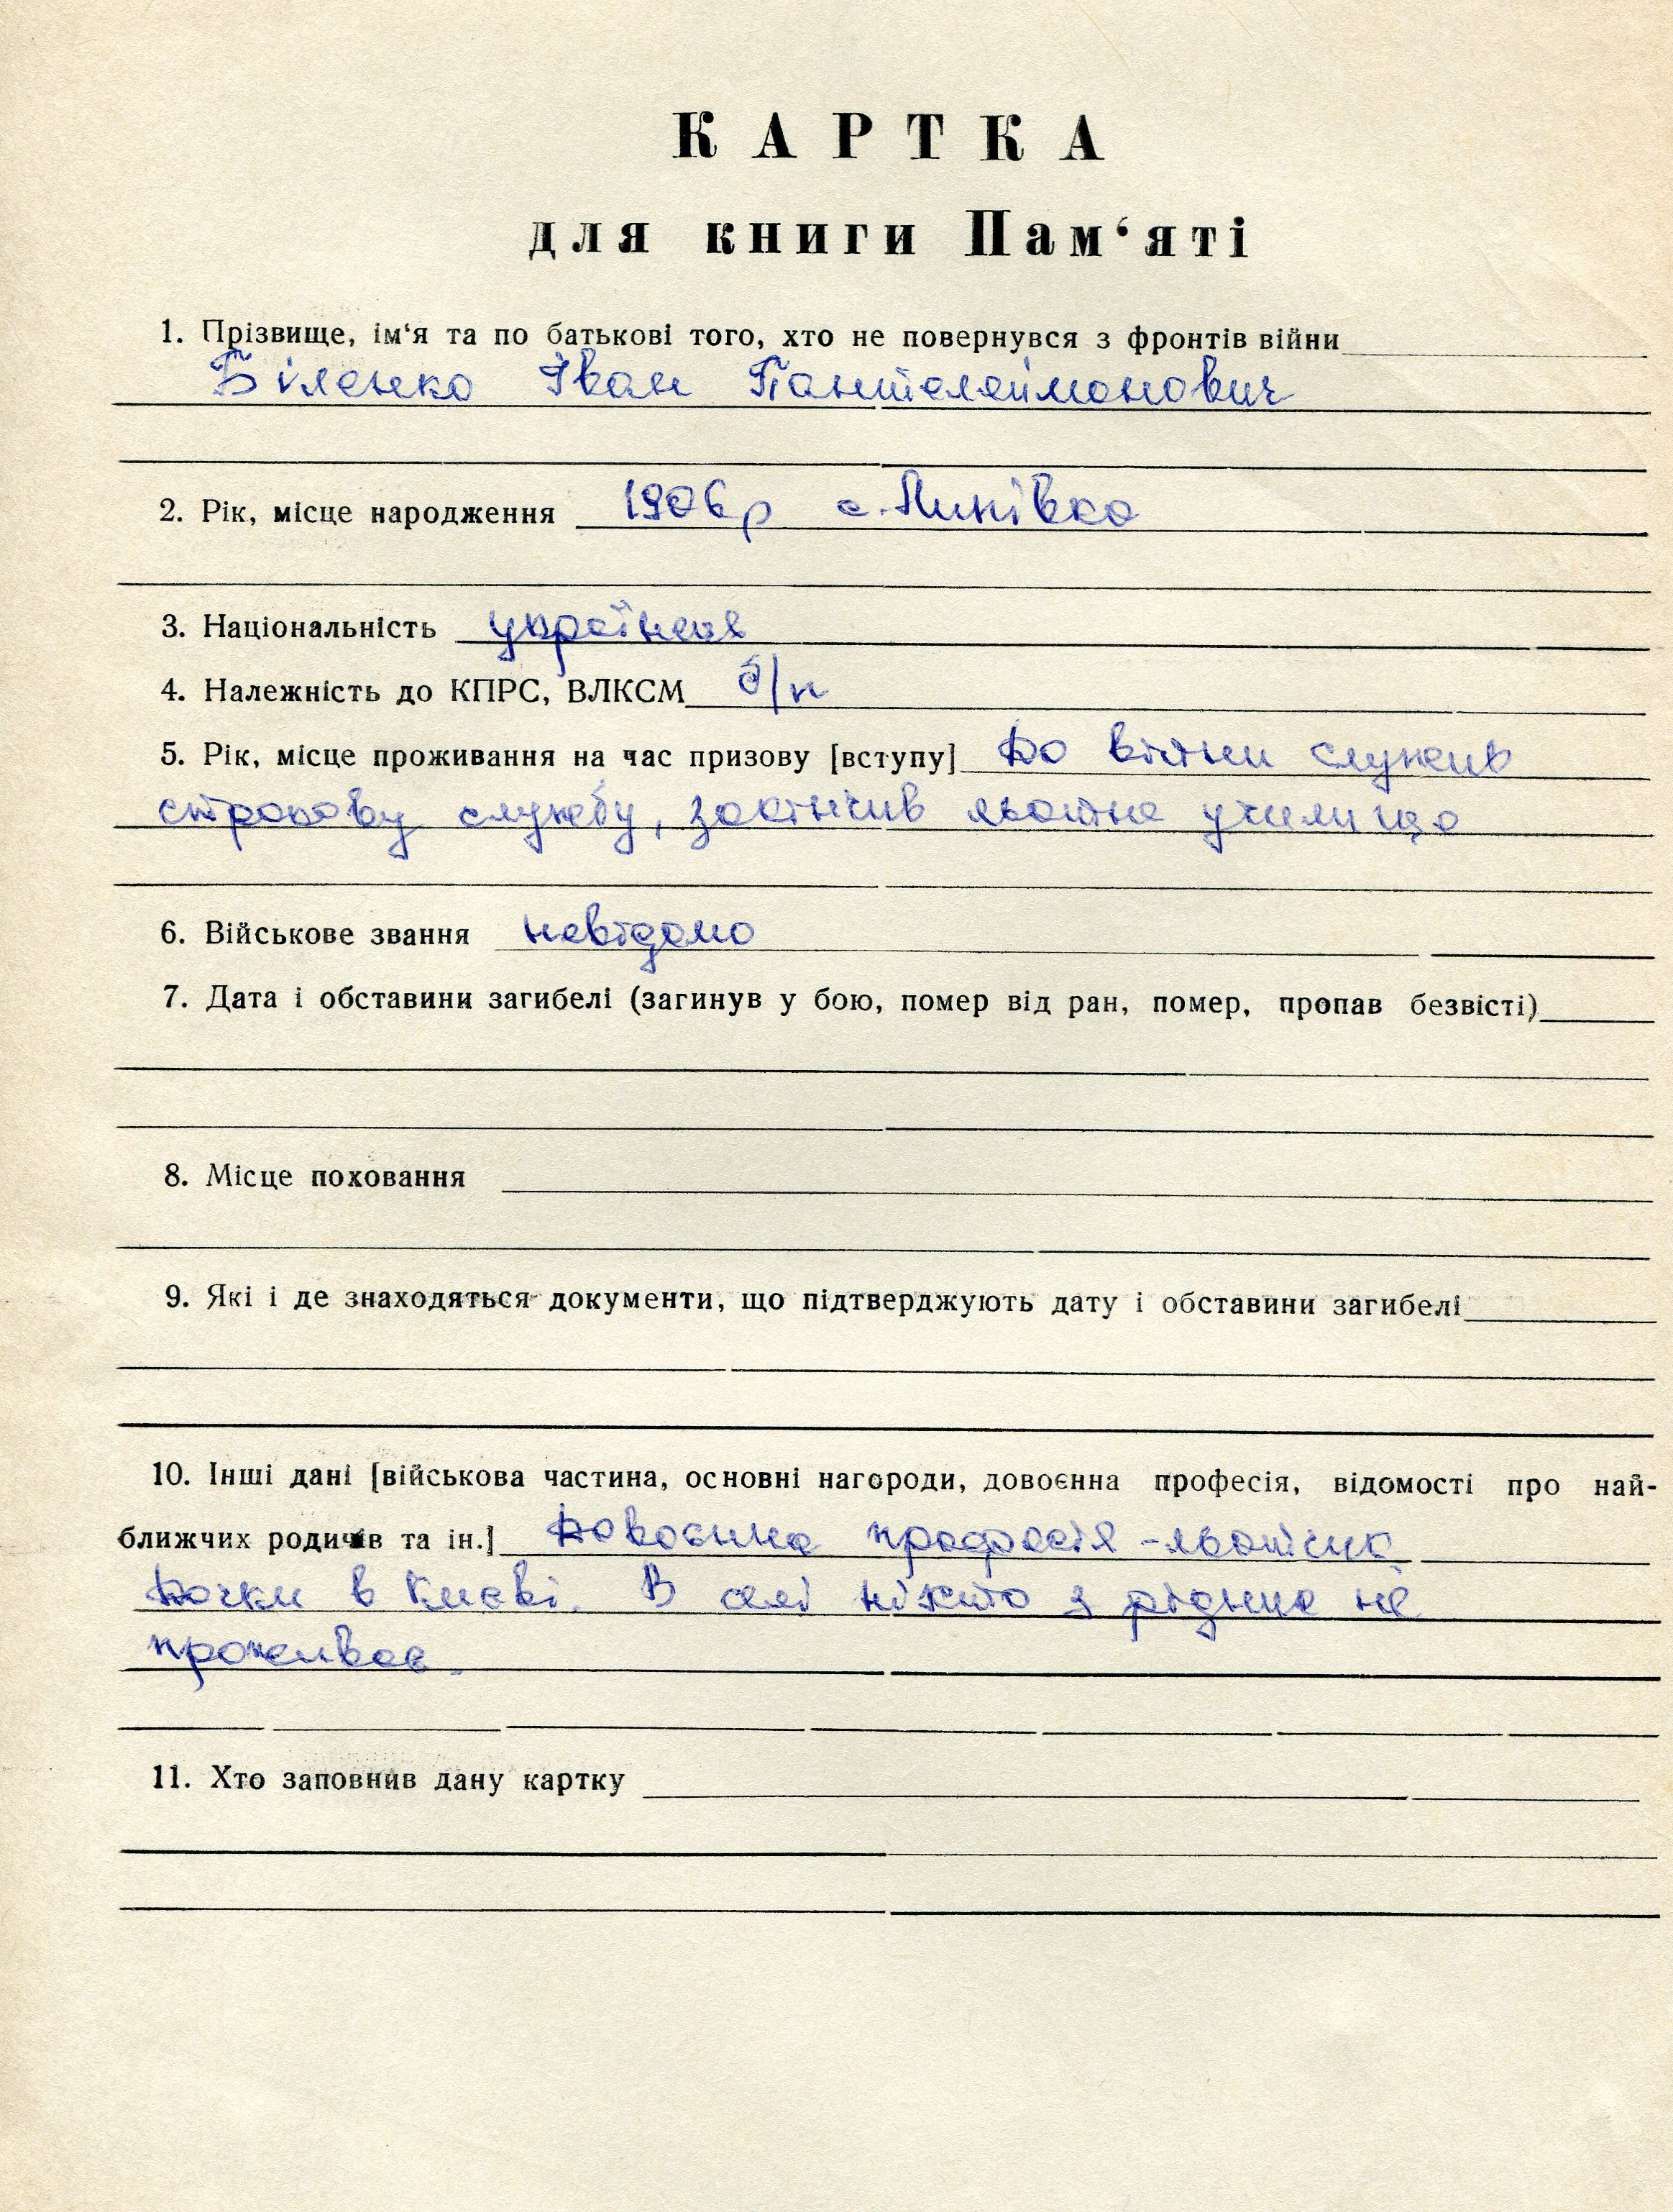 КАРТКА
для книги Пам‘яті
1. Прізвище, ім‘я та по батькові того, хто не повернувся з фронтів війни
Біленко Іван Пантелеймонович
2. Рік, місце народження 1906р с. Линівка
3. Національність українець
4. Належність до КПРС, ВЛКСМ б/п
5. Рік, місце проживання на час призову [вступу] До війни служив
строкову службу, закінчив льотне училище
6. Військове звання невідомо
7. Дата і обставини загибелі (загинув у бою, помер від ран, помер, пропав безвісті)
8. Місце поховання
9. Які і де знаходяться документи, що підтверджують дату і обставини загибелі
10. Інші дані [військова частина, основні нагороди, довоєнна професія, відомості про най-
ближчих родичів та ін.] Довоєнна професія - льотчик
Дочки в Києві. В селі ніхто з рідних не
проживає.
11. Хто заповнив дану картку